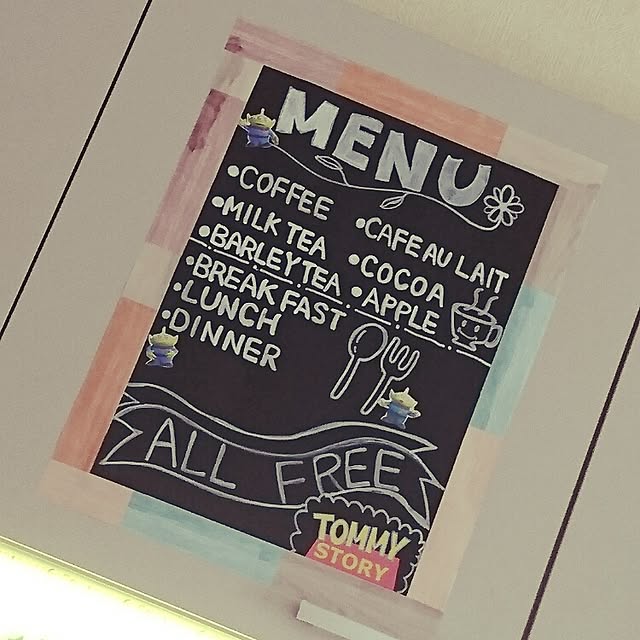 MENU
•COFFEE
•MILK TEA
•BARLEY TEA
•CAFE AU LAIT
•COCOA
•APPLE
•BREAKFAST
•LUNCH
•DINNER
ALL FREE
TOMMY
STORY